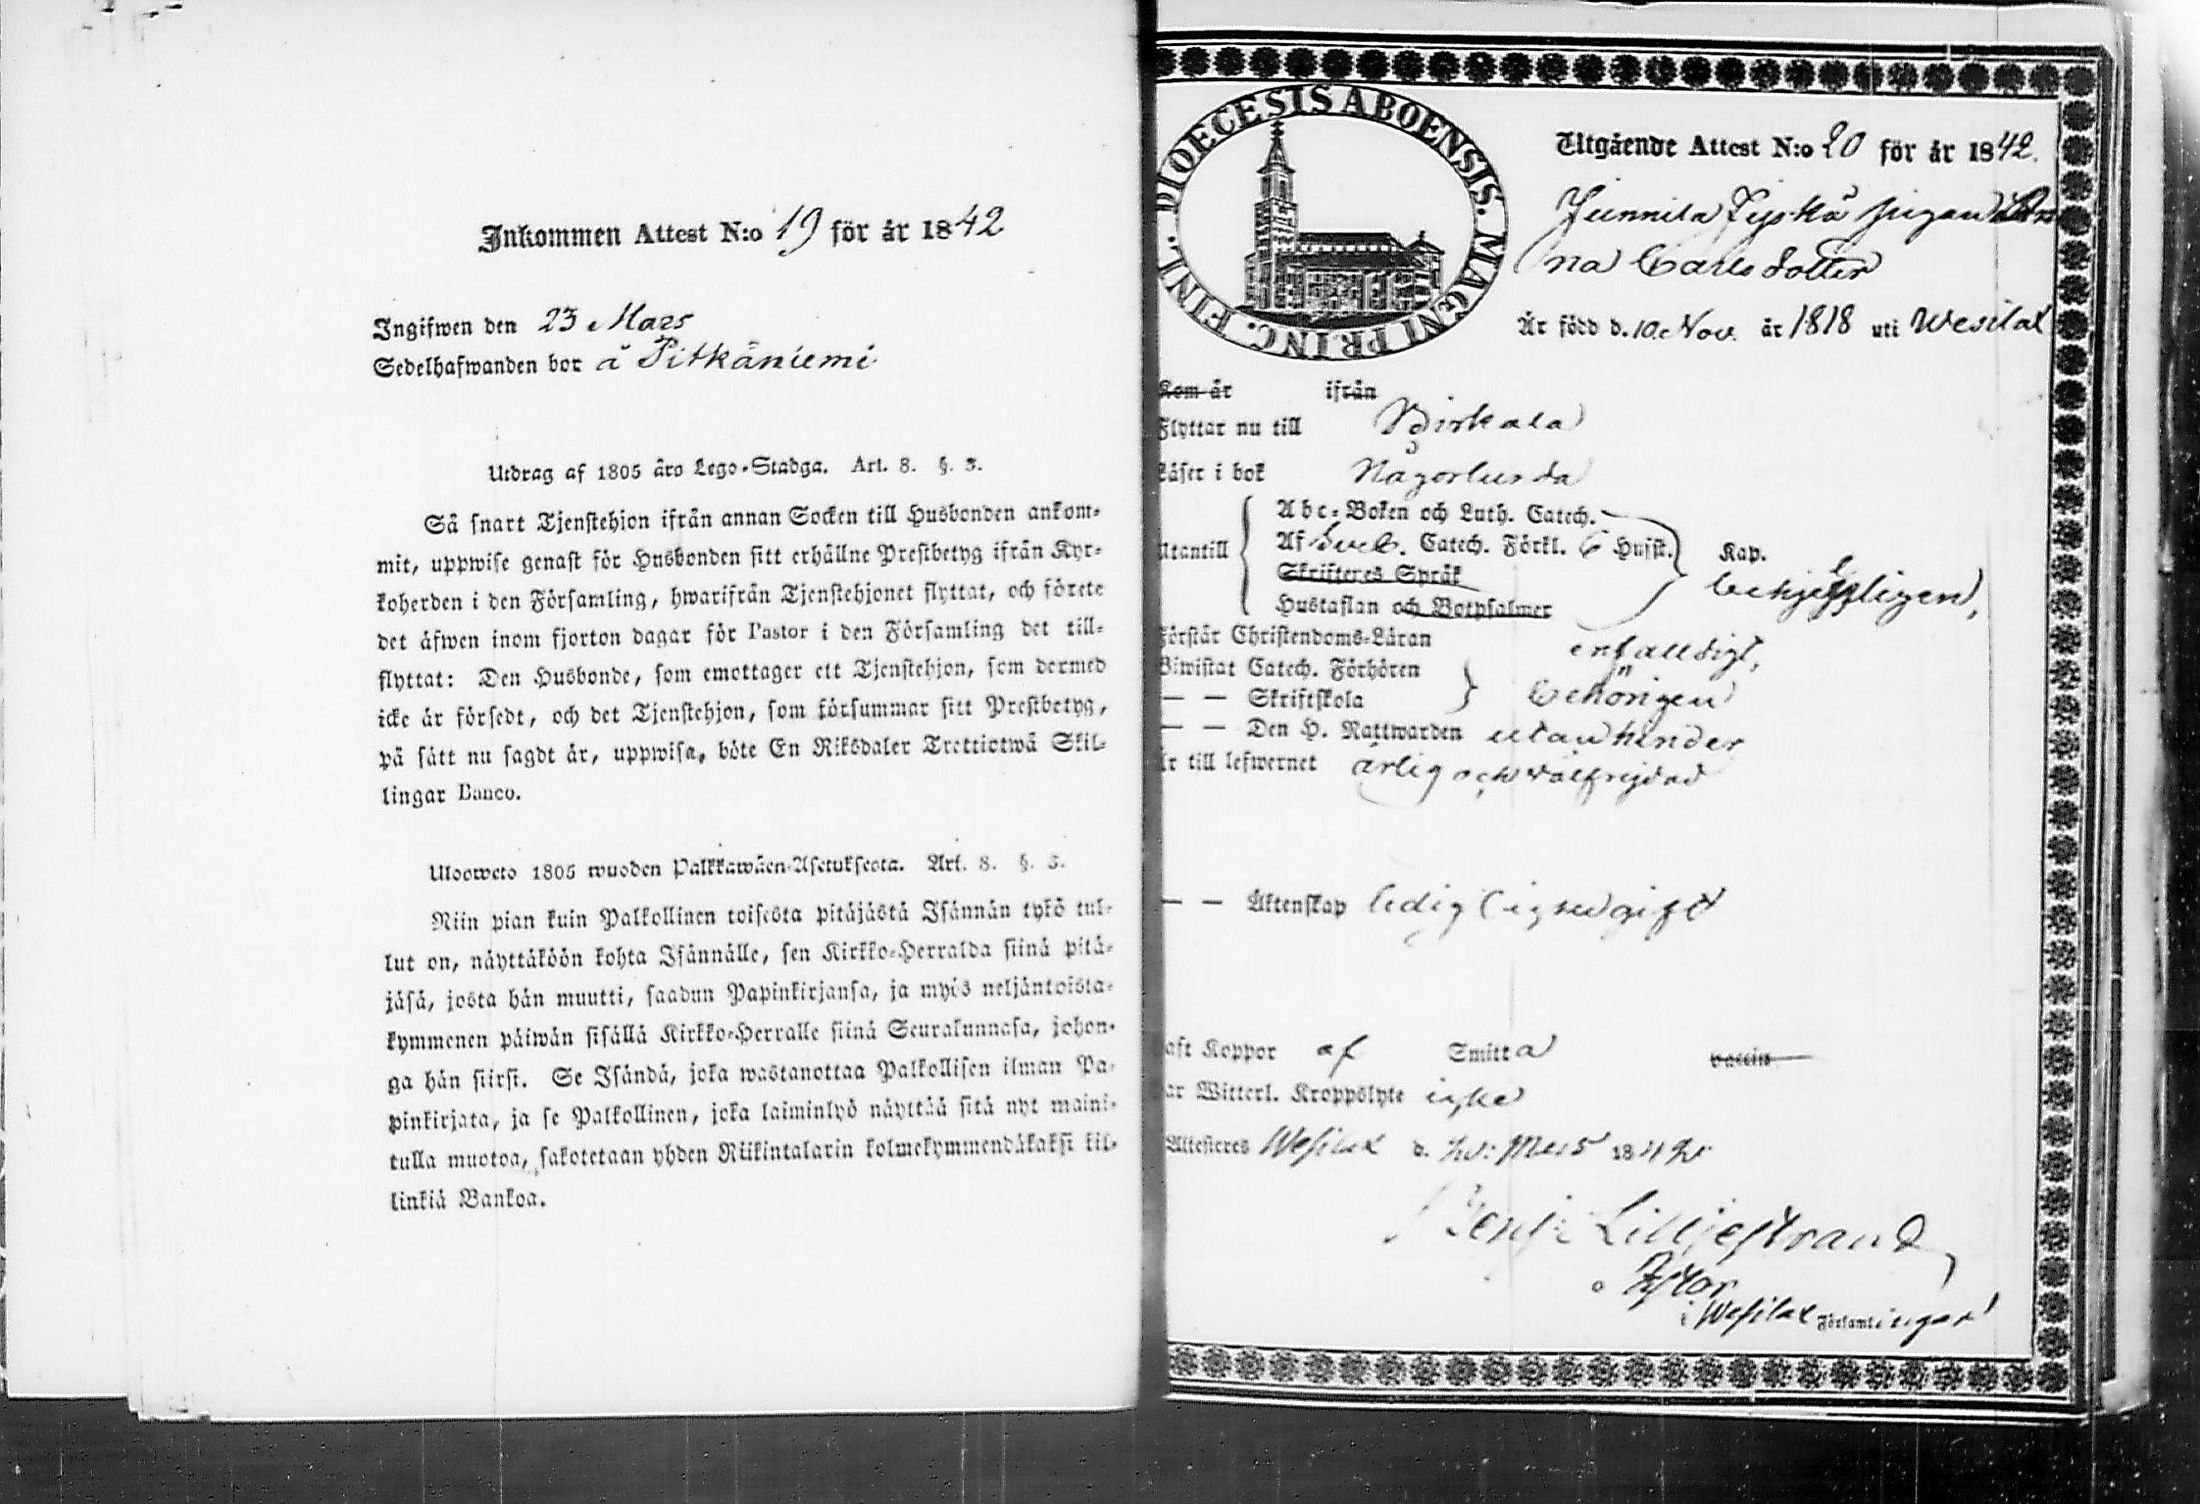 Inkommen Attest N:o 19 för år 1842
Ingifwen den 23 Mars
Sedelhafwanden bor å Pitkäniemi
Utdrag af 1805 års Lego-Stadga. Art. 8. §. 3.
Så snart Tjenstehjon ifrån annan Socken till Husbonden ankom-
mit, uppwise genast för Husbonden sitt erhållne Prestbetyg ifrån Kyr-
koherden i den Församling, hwarifrån Tjenstehjonet flyttat, och förete
det äfwen inom fjorton dagar för Pastor i den Församling det till-
flyttat: Den Husbonde, som emottager ett Tjenstehjon, som dermed
icke är försedt, och det Tjenstehjon, som försummar sitt Prestbetyg,
på sätt nu sagdt är, uppwisa, böte En Riksdaler Trettiotwå Skil-
lingar Banco.
Uloosweto 1805 wuoden Palkkawäen-Asetuksesta. Art. 8. §. 3.
Niin pian kuin Palkollinen toisesta pitäjästä Isännän tykö tul-
lut on, näyttäköön kohta Isännälle, sen Kirkko-Herralda siinä pitä-
jäsä, josta hän muutti, saadun Papinkirjansa, ja myös neljäntoista-
kymmenen päiwän sisällä Kirkko-Herralle siinä Seurakunnasa, johon-
ga hän siirsi. Se Isändä, joka wastanottaa Palkollisen ilman Pa-
pinkirjata, ja se Palkollinen, joka laiminlyö näyttää sitä nyt maini-
tulla muotoa, sakotetaan yhden Riikintalarin kolmekymmendäkaksi kil-
linkiä Bankoa.
DIOECESIS ABOENSIS. MAGNI PRINC. FINL.
Utgående Attest N:o 20 för år 1842.
pigan An
na Carlsdotter
Är född d. 10 Nov. år 1818 uti Wesilax
Kom år ifrån
Flyttar nu till Birkala
Läser i bok Någorlunda
Utantill
Abc-Boken och Luth. Catech.
Af Sveb. Catech. Förkl. 6 Hufst. Kap.
Skriftenes Språk
Hustaflan och Botpsalmer
Förstår Christendoms-Läran enfalldigt,
Biwistat Catech. Förhören
— — Skriftskola behörigen
— — Den H. Nattwarden utan hinder
Är till lefwernet ärlig och välfrejdad
— — Äktenskap ledig
Haft Koppor af Smitta vaccin
Har Witterl. Kroppslyte icke
Attesteres Wesilax d. Mars 1842
Benj: Lilljestrand
i Wesilax Församlingar